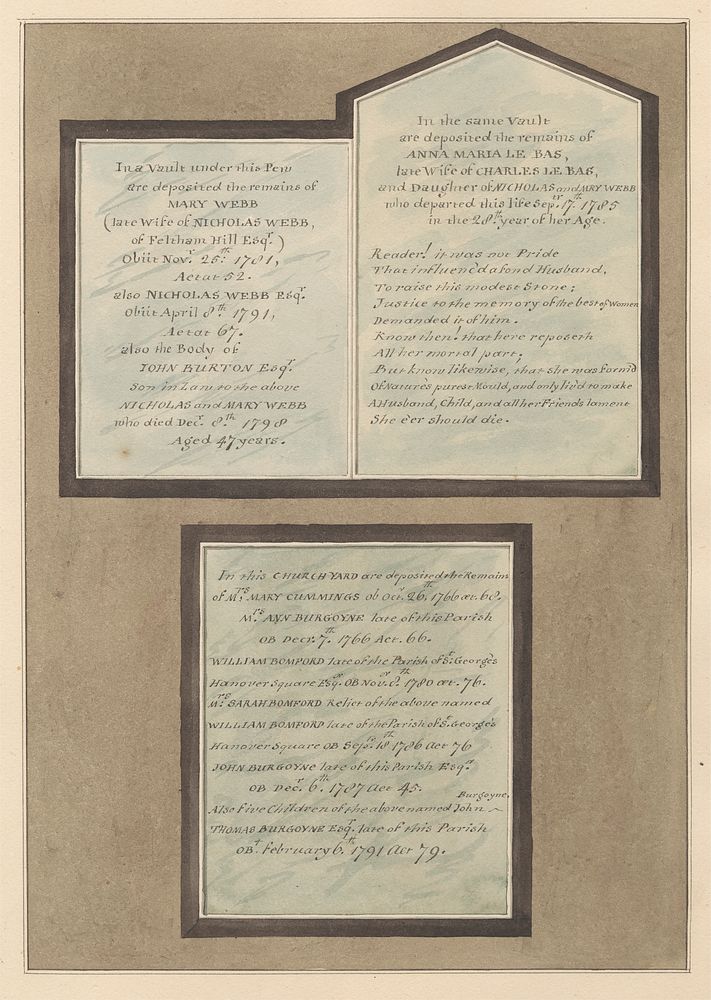 In a Vault under this Pew
are deposited the remains of
MARY WEBB
(late Wife of NICHOLAS WEBB,
of Feltham Hill Esqr.)
Obiit Novr. 25th. 1781,
Aetat 52.
also NICHOLAS WEBB Esqr.
Obiit April 8th. 1791,
Aetat 67.
also the Body of
JOHN BURTON Esqr.
Son in Law to the above
NICHOLAS and MARY WEBB
who died Decr. 8th. 1798
Aged 47 years.
In the same Vault
are deposited the remains of
ANNA MARIA LE BAS,
late Wife of CHARLES LE BAS,
and Daughter of NICHOLAS and MRY WEBB
who departed this life Sepr. 17th. 1785
in the 28th. year of her Age.
Reader! it was not Pride
That influenc'd a fond Husband,
To raise this modest Stone;
Justice to the memory of the best of Women
Demanded it of him.
Know then! that here reposeth
All her mortal part;
But know likewise, that she was form'd
Of Nature's purest Mould, and only liv'd to make
A Husband, Child, and all her Friends lament
She e'er should die.
In this CHURCH YARD are deposited the Remains
of Mrs. MARY CUMMINGS ob Octr. 26th. 1766 æt. 68.
Mrs. ANN BURGOYNE late of this Parish
OB Decr. 7th. 1766 Aet. 66.
WILLIAM BOMFORD late of the Parish of St. George's
Hanover Square Esqr. OB Novr. 8th. 1780 æt. 76.
Mrs. SARAH BOMFORD Relict of the above named
WILLIAM BOMFORD late of the Parish of St. George's
Hanover Square OB Sepr. 18th 1786 Aet 76
JOHN BURGOYNE late of this Parish Esqr.
OB Decr. 6th. 1787 Aet 45.
Also Five Children of the above named John Burgoyne,
THOMAS BURGOYNE Esqr. late of this Parish
OBt. February 6th. 1791 Aet 79.